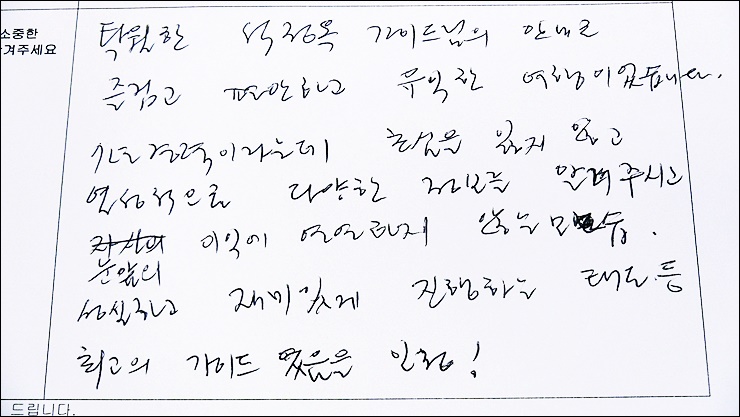 소중한
겨주세요
탁월한 석정옥 가이드님의 안내로
즐겁고 편안하고 유익한 여행이었습니다.
경력이라는데 초심을 잃지 않고
열성적으로 다양한 정보를 알려주시고
이익에 연연하지 않는 모습.
눈앞의
성실하고 재미있게 진행하는 태도 등
최고의 가이드 였음을 인정!
드립니다.